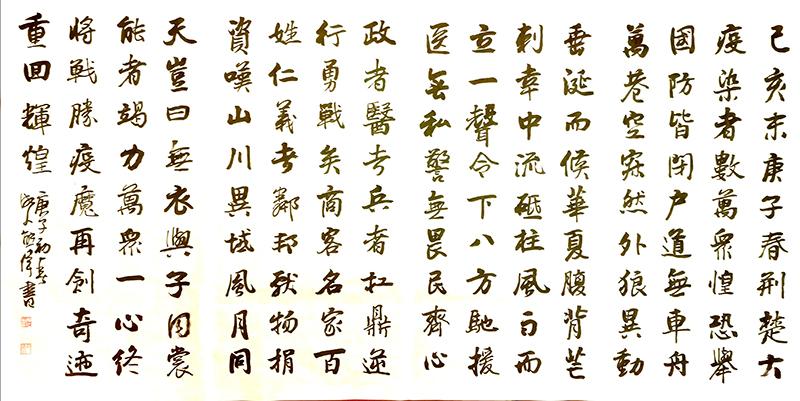 己亥末庚子春荆楚大
疫染者數萬衆惶恐舉
國防皆閉户道無車舟
萬巷空寂然外狼異動
垂涎而候華夏腹背芒
刺幸中流砥柱風雨而
立一聲令下八方馳援
医無私警無畏民齊心
政者醫者兵者扛鼎逆
行勇戰矣商客名家百
姓仁義者鄰邦獻物捐
資嘆山川異域風月同
天豈曰無衣與子同裳
能者竭力萬衆一心終
將戰勝疫魔再創奇迹
重回輝煌
庚子初春
書